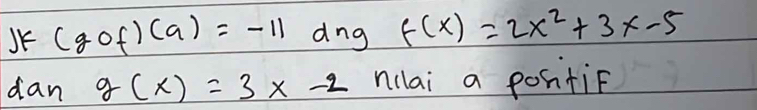 Jk (gof)(a) = -11 dng f(x) = 2x² + 3x - 5
dan g(x) = 3x - 2 nilai a positif